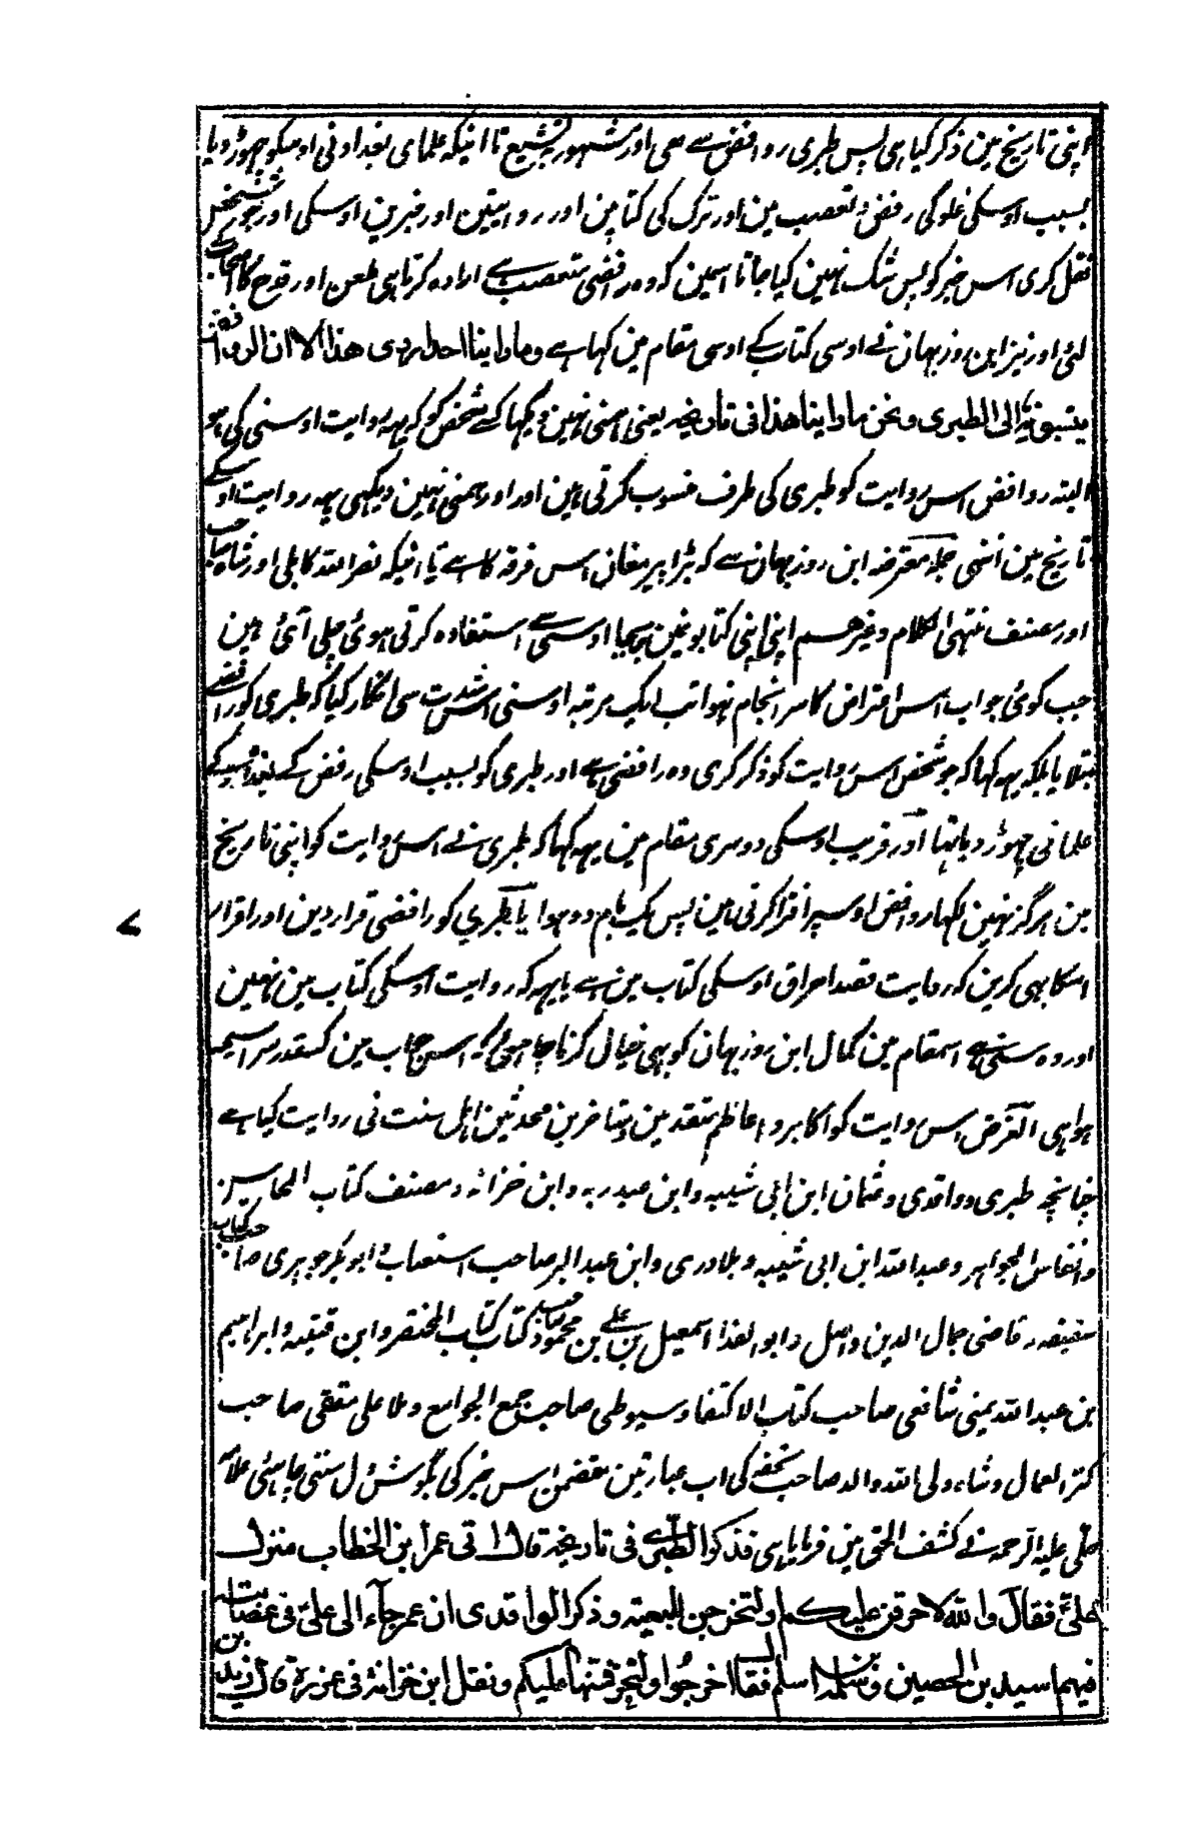 اپنی تاریخ مین ذکر کیا ہی پس طبری روافض سے ہی اور مشہور بتشیع تا اینکہ علمای بغداد نی اوسکو چھوڑ دیا
بسبب اوسکی غلو کی رفض و تعصب مین اور ترک کی کتابین اور روایتین اور خبرین اوسکی اور جو شخص
نقل کری اس خبر کو پس شک نہین کیا جاتا اسمین کہ وہ رافضی متعصب ہے ارادہ کرتا ہی طعن اور قدح کا اصحاب
لئی اور نیز ابن روزبہان نے اوسی کتاب کے اوسی مقام مین کہا ہے وما راینا احدا روی هذا الا ان الروافض
ینسبونہ الی الطبری ونحن ما راینا هذا فی تاریخہ یعنی ہمنی نہین دیکہا کسے شخص کو کہ یہہ روایت اوسنی کی ہو
البتہ روافض اس روایت کو طبری کی طرف منسوب کرتی ہین اور اور ہمنی نہین دیکہی یہہ روایت اوسکے
تاریخ مین انتہی جملہ معترضہ ابن روزبہان سے کہ بڑا پیر مغان اس فرقہ کا ہے تا اینکہ نصر اللہ کابلی اور شاہ صاحب
اور مصنف منتہی الکلام وغیرہم اپنی اپنی کتابونمین بیجا اوسی سے استفادہ کرتی ہوئ چلی آئ ہین
جب کوئ جواب اس اعتراض کا سرانجام نہوا تب ایک مرتبہ اوسنی اس شدت سی انکار کیا کہ طبری کو رافضے
بتلایا بلکہ یہہ کہا کہ جو شخص اس روایت کو ذکر کری وہ رافضی ہے اور طبری کو بسبب اوسکی رفض کے بغداد کے
علما نی چھوڑ دیا تہا اور قریب اوسکی دوسری مقام مین یہہ کہا کہ طبری نے اس روایت کو اپنی تاریخ
مین ہرگز نہین لکہا روافض اوسپر افترا کرتی ہین پس یک بام دو ہوا یا طبری کو رافضی قرار دین اور اقرار
اسکا بہی کرین کہ روایت قصد احراق اوسکی کتاب مین ہے یا یہہ کہ روایت اوسکی کتاب مین نہین
اور وہ سنی ہے اسمقام مین کمال ابن روزبہان کو بہی خیال کرنا چاہئی کہ اس جواب مین کسقدر سراسیمہ
ہوا ہی الغرض اس روایت کو اکابر و اعاظم متقدمین و متاخرین محدثین اہل سنت نی روایت کیا ہے
چنانچہ طبری و واقدی و عثمان ابن ابی شیبہ و ابن عبد ربہ و ابن خزانہ و مصنف کتاب المحاسن
وانفاس الجواہر و عبد اللہ ابن ابی شیبہ و بلادری و ابن عبد البر صاحب استیعاب و ابو بکر جوہری صاحب کتاب
سقیفہ و قاضی جمال الدین واصل و ابو الفدا اسمعیل بن علی بن محمود صاحب کتاب کتاب المختصر و ابن قتیبہ و ابراہیم
بن عبد اللہ یمنی شافعی صاحب کتاب الاکتفا و سیوطی صاحب جمع الجوامع و ملا علی متقی صاحب
کنز العمال و شاہ ولی اللہ والد صاحب تحفہ کی اب عبارتین متضمن اس خبر کی بگوش دل سننی چاہئی علامہ
حلی علیہ الرحمہ نے کشف الحق مین فرمایا ہی فذکر الطبری فی تاریخہ قال اتی عمر ابن الخطاب منزل
علیّ فقال واللہ لاحرقن علیکم او لتخرجن للبیعة وذکر الواقدی ان عمر جآء الی علیّ فی عصابة
فیہم اسید بن الحصین وسلمة بن اسلم فقال اخرجُوا او لنحرقنها علیکم ونقل ابن خزانة فی غررہ قال زید بن